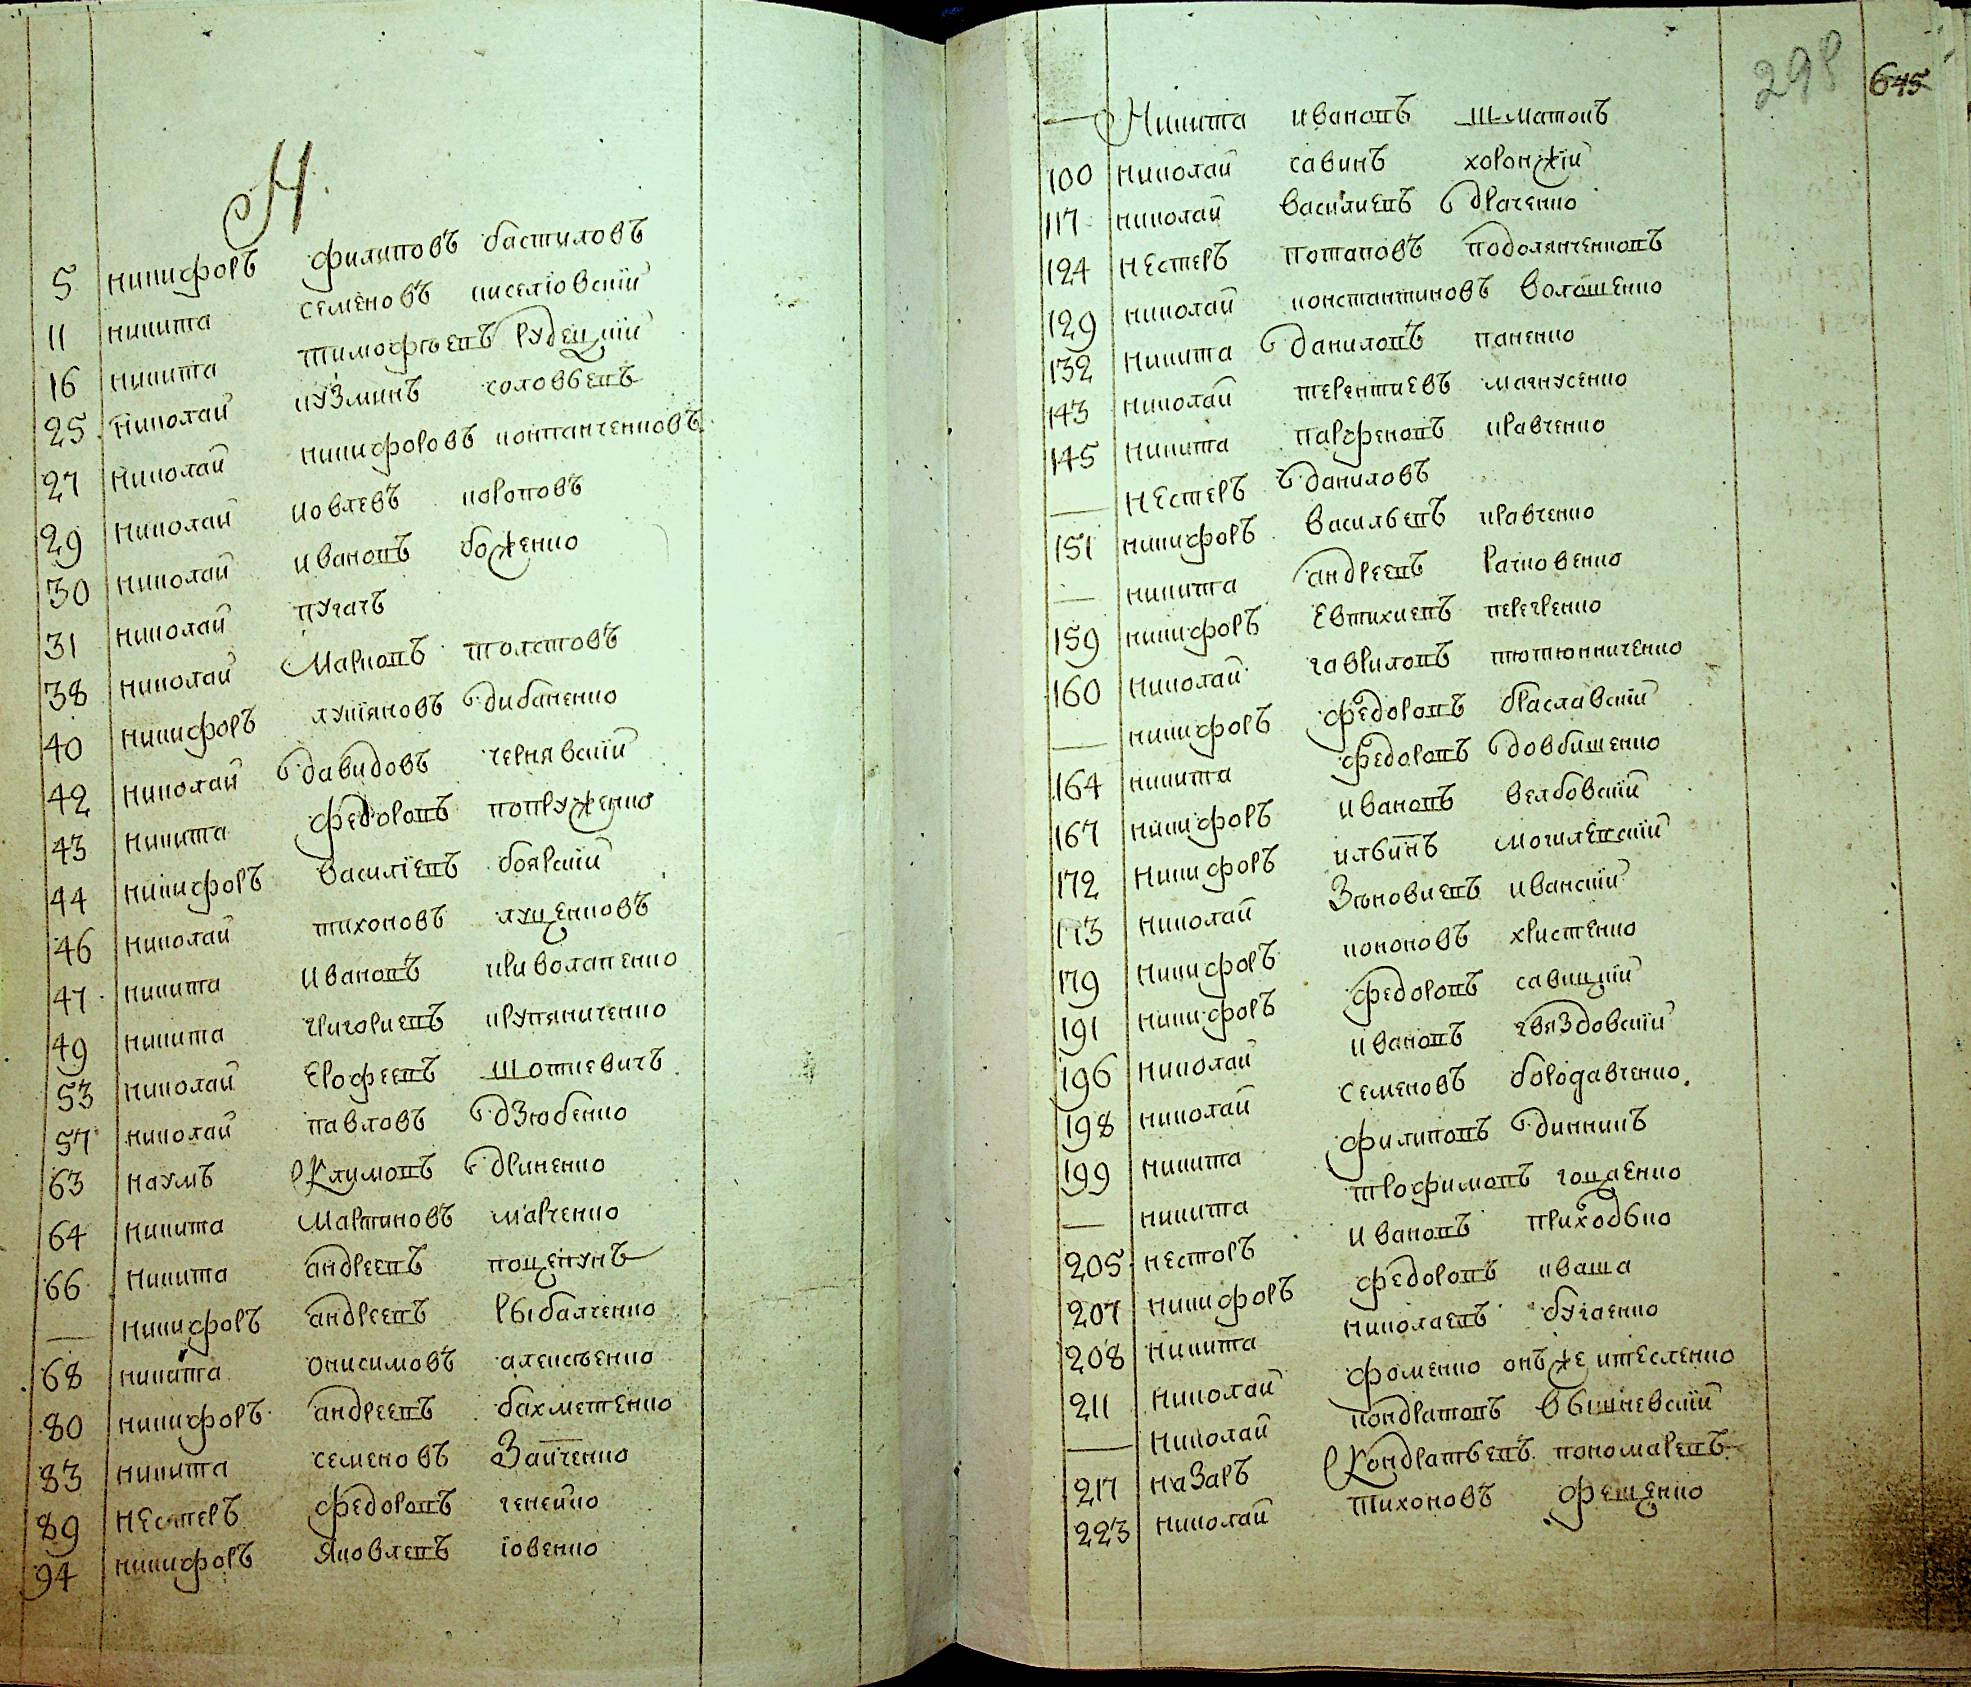 Н.
5 никифоръ филиповъ бастиловъ
11 никита семеновъ киселіовскій
16 никита тимофѣевъ рудецкій
25 николай кузминъ соловьевъ
27 николай никифоровъ контанченковъ
29 николай ковлевъ коротовъ
30 николай ивановъ боженко
31 николай пугачъ
38 николай Марковъ толстовъ
40 никифоръ лукіяновъ дибаненко
42 николай давидовъ чернявскій
43 никита федоровъ попруженко
44 никифоръ василіевъ боярскій
46 николай тихоновъ луценковъ
47 никита ивановъ криволапенко
49 никита григориевъ крупяниченко
53 николай Ерофеевъ шоткевичъ
57 николай павловъ дзюбенко
63 наумъ Климовъ дриненко
64 никита Мартиновъ марченко
66 никита андреевъ поцепунъ
— никифоръ андреевъ рыбалченко
68 никита онисимовъ алексѣенко
80 никифоръ андреевъ бахметенко
83 никита семеновъ Зайченко
89 нестеръ федоровъ генейко
94 никифоръ яковлевъ іовенко
298 645
— Никита ивановъ шматокъ
100 николай савинъ хоронжій
117 николай василиевъ драченко
124 нестеръ потаповъ подолянченковъ
129 николай константиновъ волошенко
132 никита даниловъ паненко
143 николай терентиевъ магнусенко
145 никита парфеновъ кравченко
— нестеръ даниловъ
151 никифоръ васильевъ кравченко
— никита андреевъ Рачковенко
159 никифоръ Евтихиевъ перегренко
160 николай гавриловъ тютюнниченко
— никифоръ федоровъ браславскій
164 никита федоровъ довбишенко
167 никифоръ ивановъ велбовскій
172 никифоръ ильинъ могилевскій
173 николай Зѣновиевъ иванскій
179 никифоръ кононовъ христенко
191 никифоръ федоровъ савицкій
196 николай ивановъ гвяздовскій
198 николай семеновъ бородавченко.
199 никита филиповъ динникъ
— никита трофимовъ гоцаенко
205 несторъ ивановъ приходько
207 никифоръ федоровъ кваша
208 никита николаевъ бугаенко
211 николай фоменко онъ же итесленко
— николай кондратовъ вышневскій
217 назаръ Кондратьевъ пономаревъ
223 николай тихоновъ фещенко